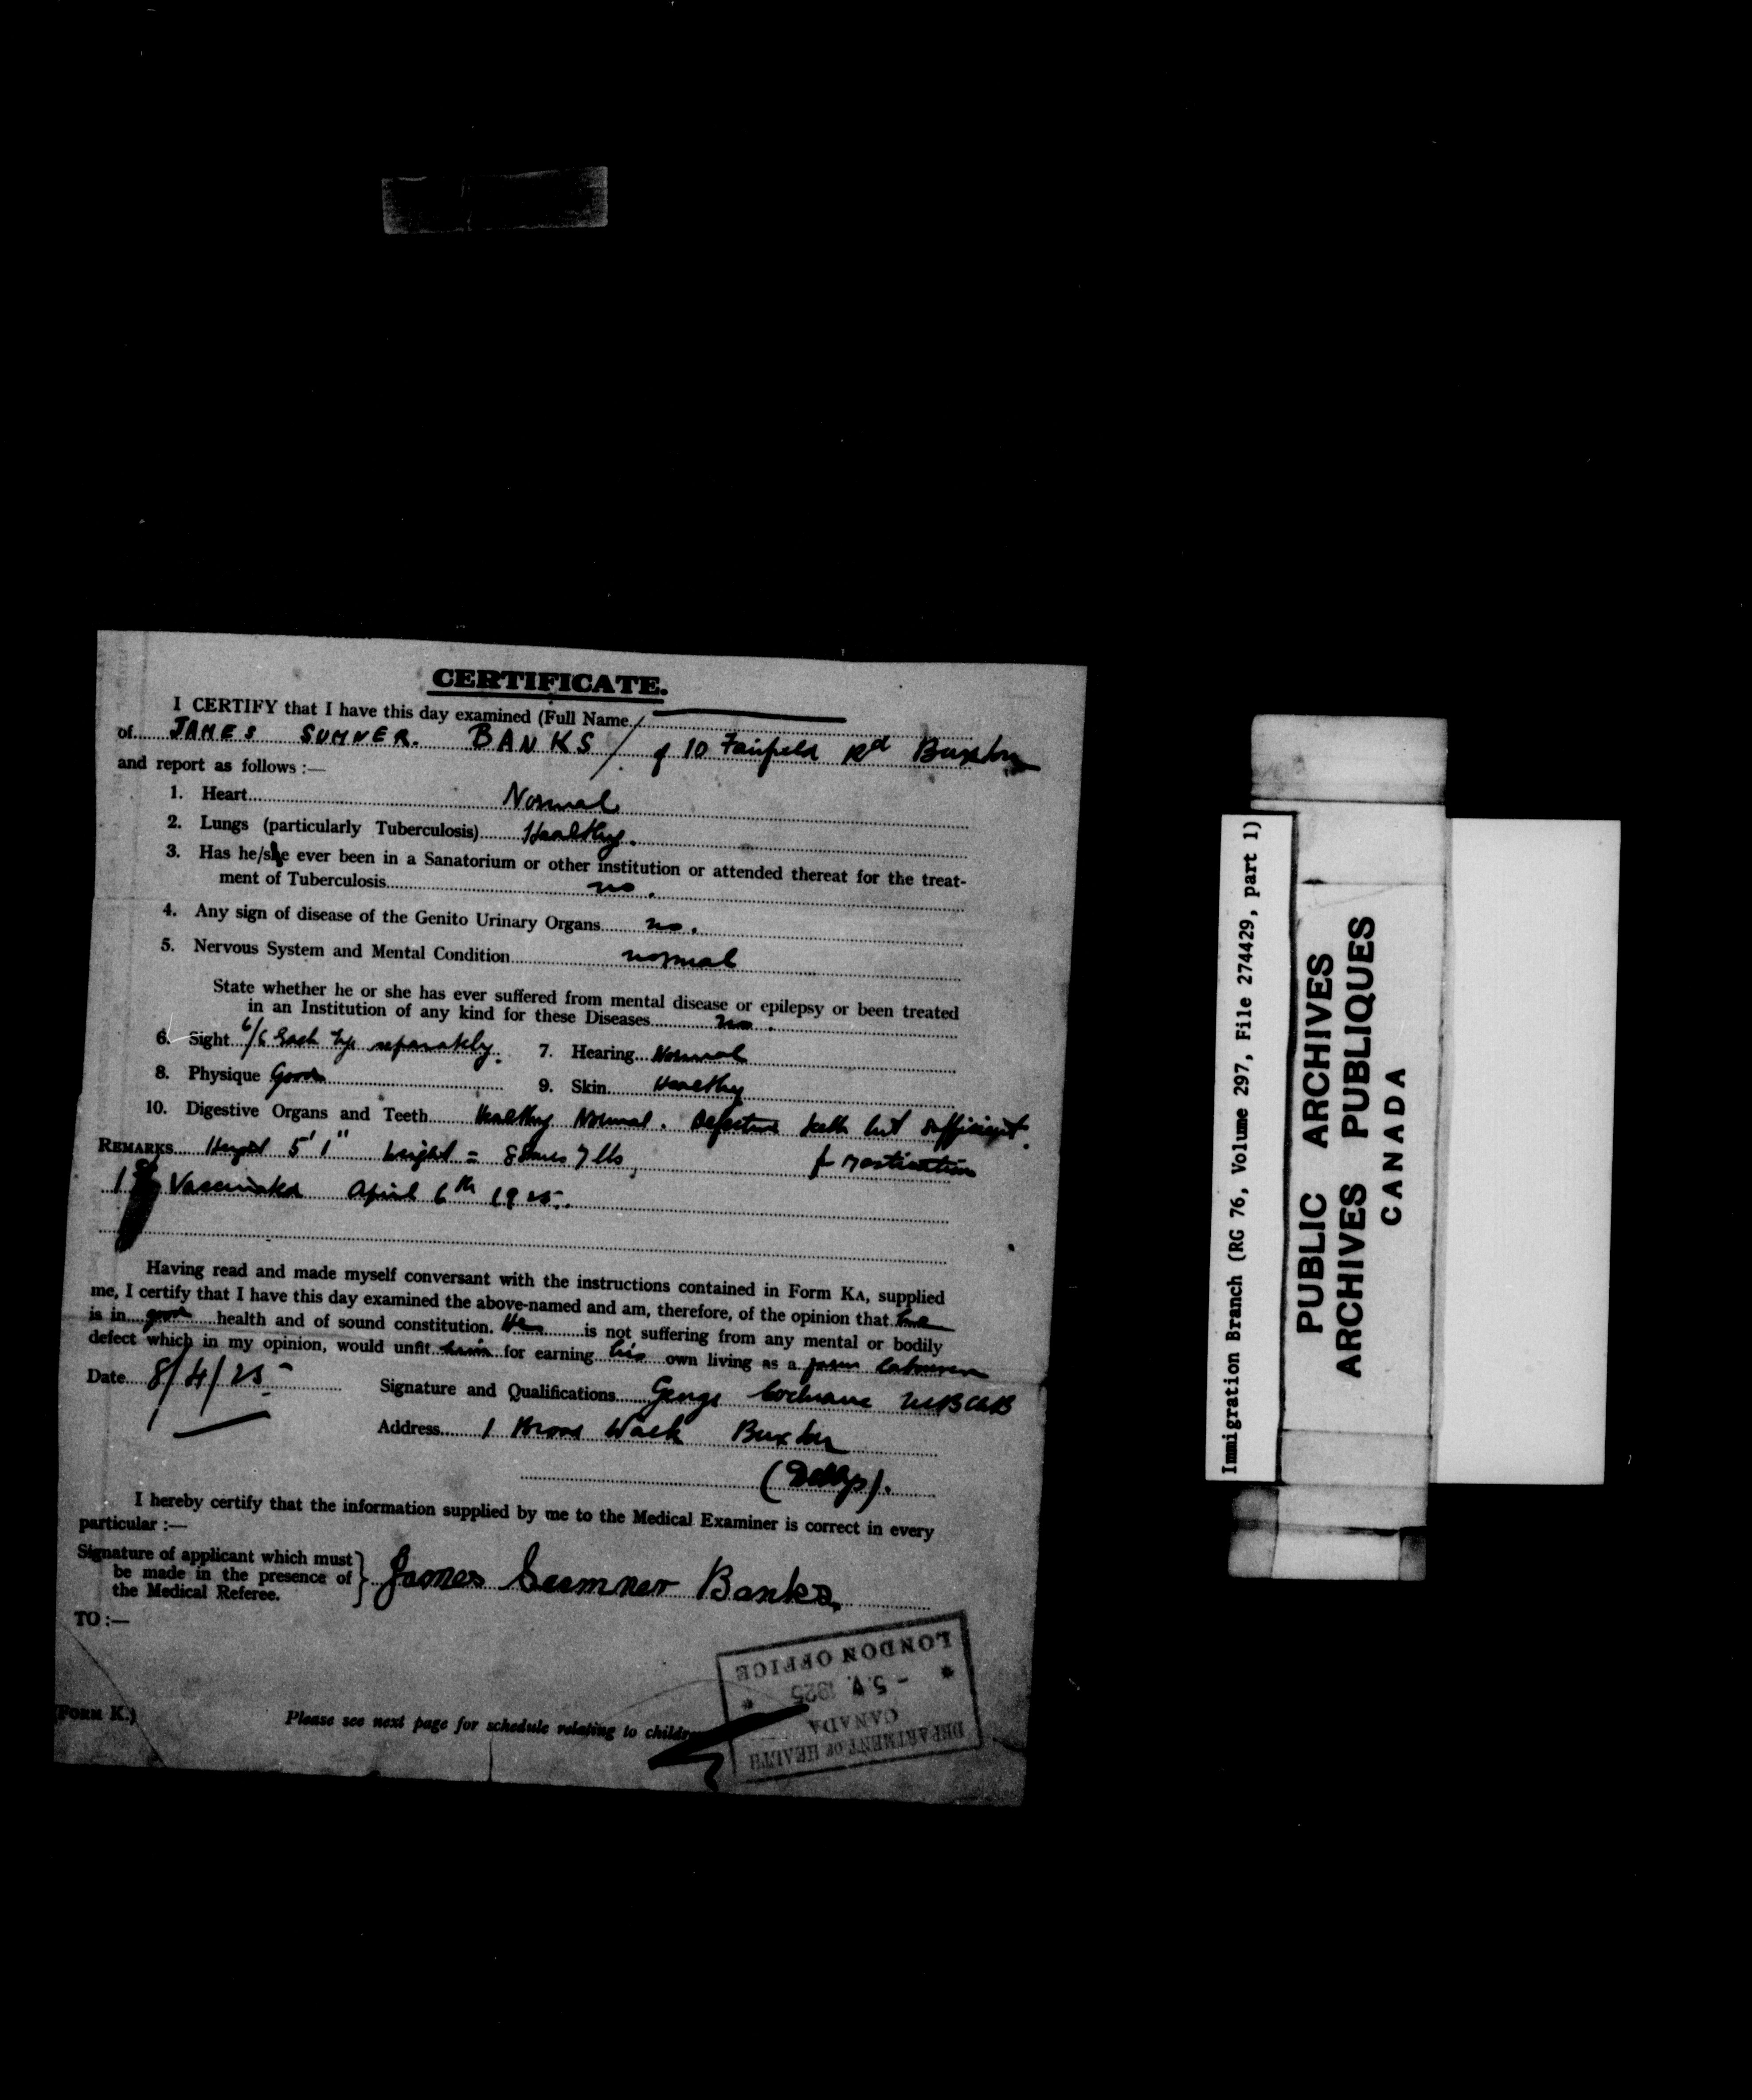 CERTIFICATE.
I CERTIFY that I have this day examined (Full Name
of JAMES SUMNER. BANKS / of 10 Fairfield Rd Buxton
and report as follows :—
1. Heart Normal
2. Lungs (particularly Tuberculosis) Healthy.
3. Has he/she ever been in a Sanatorium or other institution or attended thereat for the treat-
ment of Tuberculosis no.
4. Any sign of disease of the Genito Urinary Organs no.
5. Nervous System and Mental Condition normal
State whether he or she has ever suffered from mental disease or epilepsy or been treated
in an Institution of any kind for these Diseases no.
6. Sight 6/6 Each Eye separately. 7. Hearing Normal
8. Physique Good 9. Skin Healthy
10. Digestive Organs and Teeth Healthy Normal. Defective teeth but sufficient
for mastication.
REMARKS Height 5' 1" Weight = 8 Stones 7 lbs
Vaccinated April 6th 1925.
Having read and made myself conversant with the instructions contained in Form KA, supplied
me, I certify that I have this day examined the above-named and am, therefore, of the opinion that he
is in good health and of sound constitution. He is not suffering from any mental or bodily
defect which in my opinion, would unfit him for earning his own living as a farm labourer
Date 8/4/25 Signature and Qualifications George Cochrane MBChB
Address 1 Broad Walk Buxton
(Derbys).
I hereby certify that the information supplied by me to the Medical Examiner is correct in every
particular :—
Signature of applicant which must
be made in the presence of
the Medical Referee. } James Sumner Banks.
TO :—
DEPARTMENT OF HEALTH
CANADA
* - 5. V. 1925 *
LONDON OFFICE
(FORM K.)
Please see next page for schedule relating to children
Immigration Branch (RG 76, Volume 297, File 274429, part 1)
PUBLIC ARCHIVES
ARCHIVES PUBLIQUES
CANADA